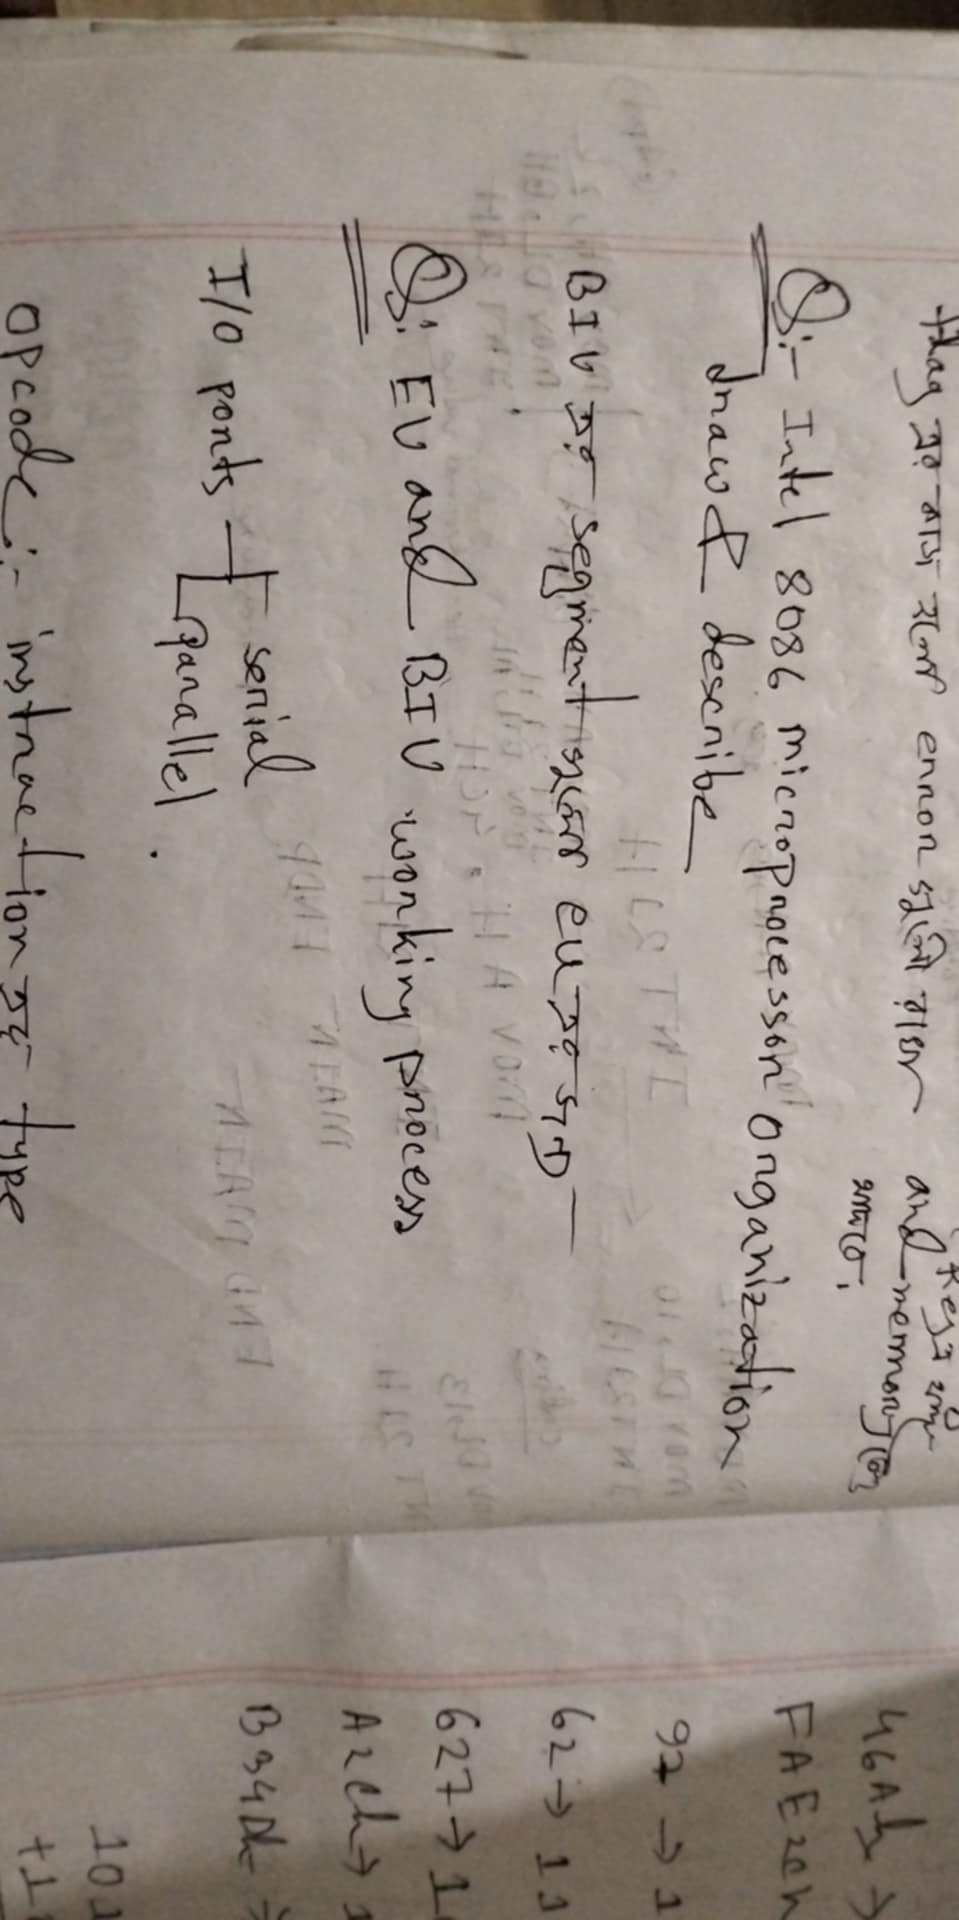 flag এর কাজ হলো error গুলো রাখা and memory তে থাকে।
Q:- Intel 8086 microprocessor organization
draw & describe
BIU এর segment গুলো EU এর জন্য
Q: EU and BIU working process
I/O ports
serial
parallel.
opcode:- instraction এর type
46Ah →
FAE2ch
97 → 1
62 → 11
627 → 1
A2Ch → 1
B34Dh →
101
+1